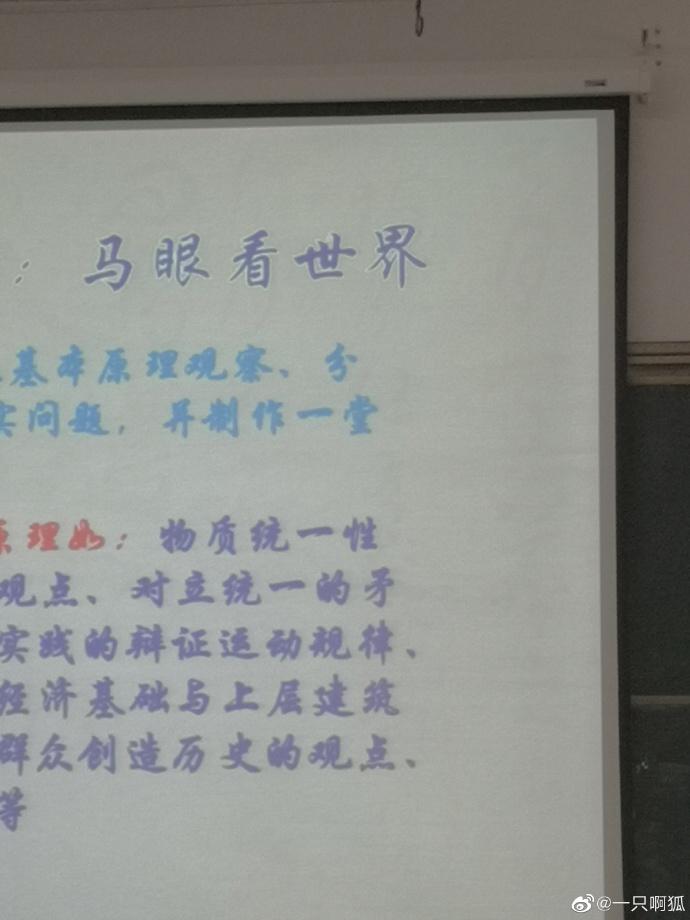 ：马眼看世界
基本原理观察、分
实问题，并制作一堂
原理如：物质统一性
观点、对立统一的矛
实践的辩证运动规律、
经济基础与上层建筑
群众创造历史的观点、
等
@一只啊狐